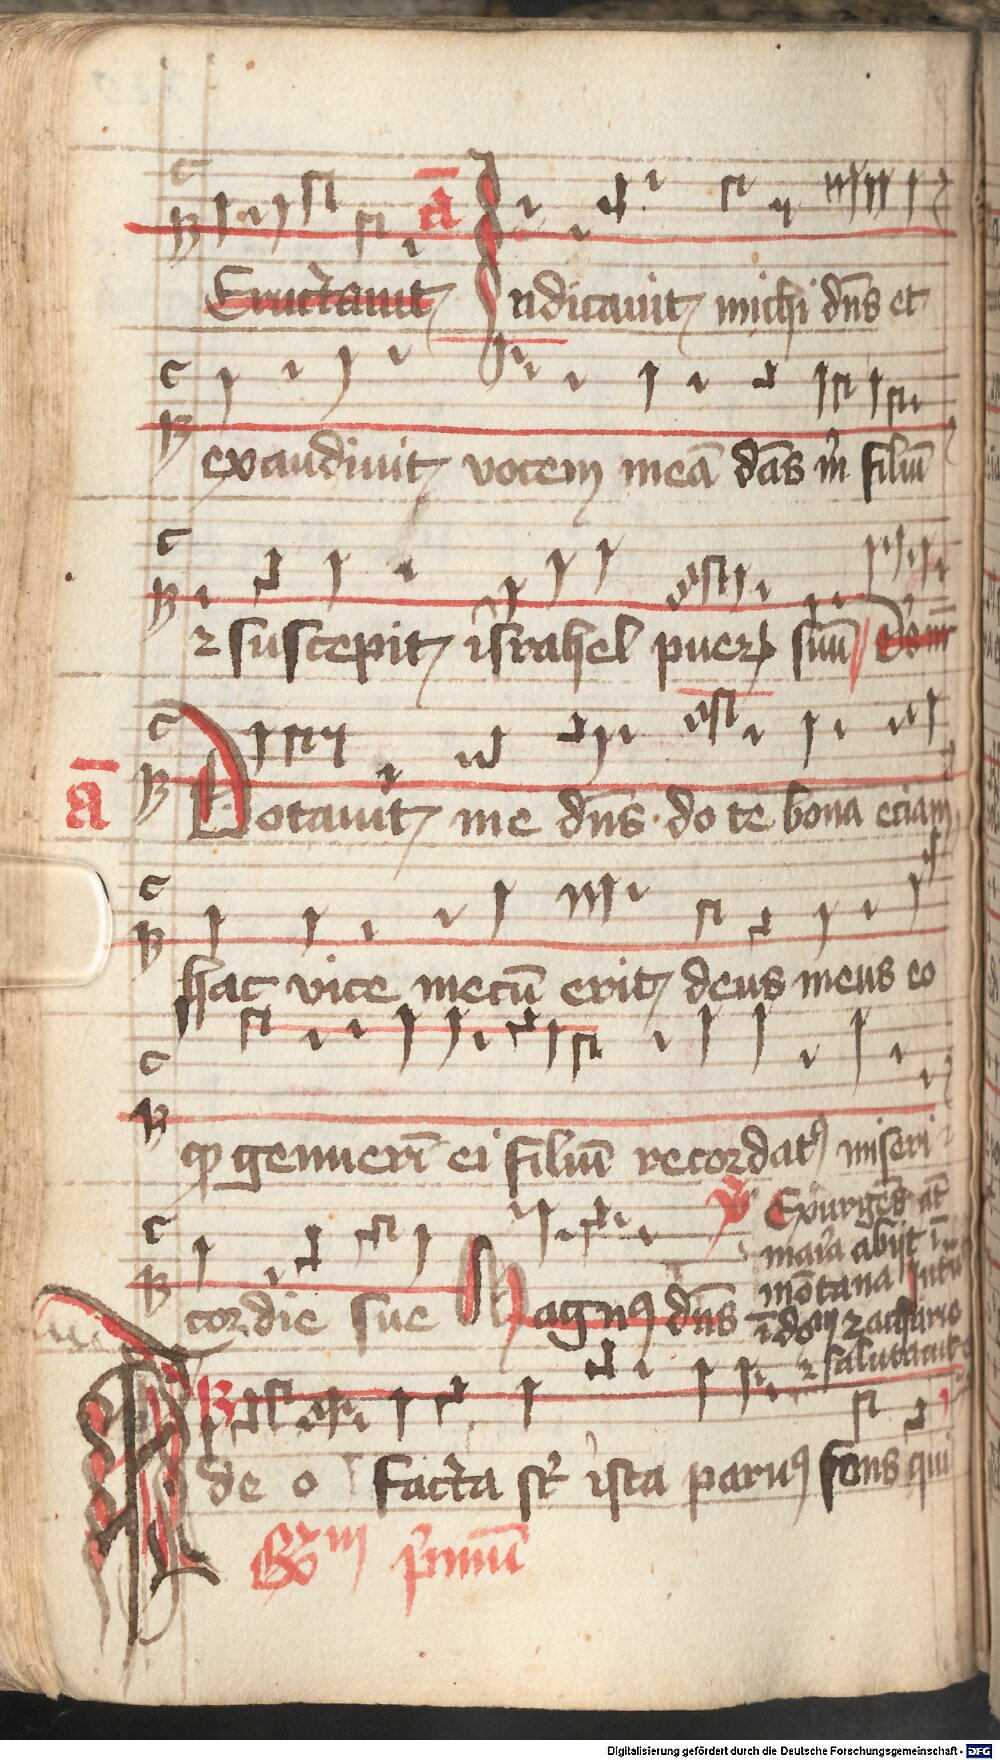 ā
Eructavit Iudicavit michi dn̄s et
exaudivit vocem meā dās m̄ filiū
⁊ suscepit israhel pueꝝ suū Dom̄
ā
Dotavit me dn̄s dote bona eciam
hac vice mecū erit deus meus eo
qꝫ genuerī ei filiū recordatꝰ miseri
cordie sue Magnꝰ dn̄s
Exurgēs aūt
maria abijt ī
mōtana
zacharie
⁊ salutavit
Adeo facta st̄ ista parvꝰ fons qui
p̄mū
Digitalisierung gefördert durch die Deutsche Forschungsgemeinschaft - DFG